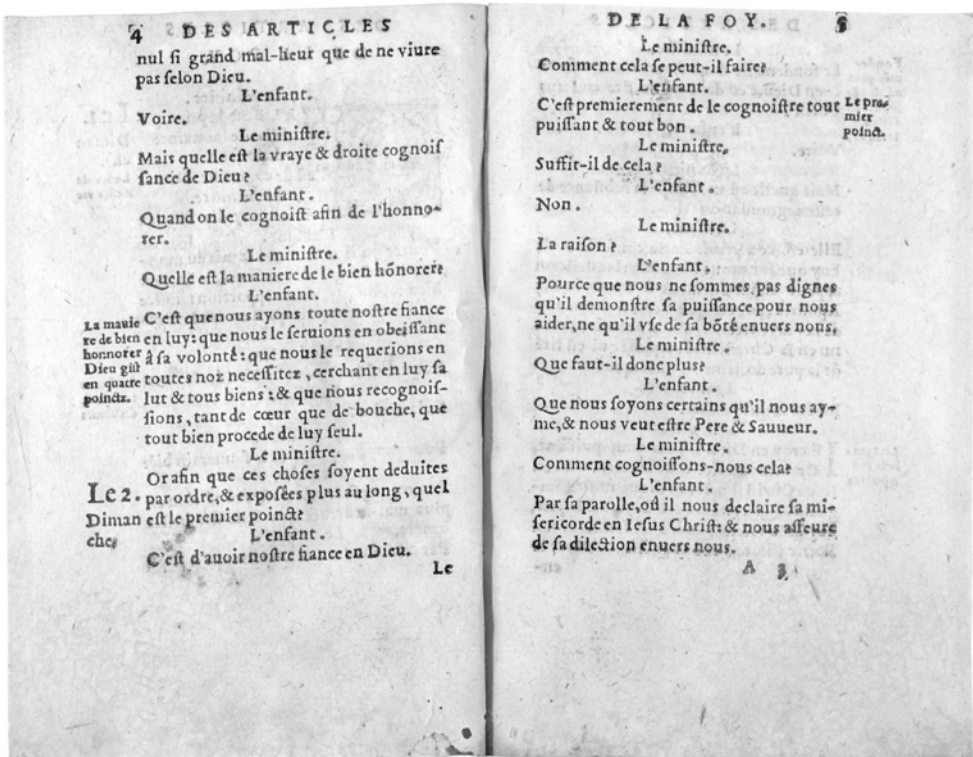 4 DES ARTICLES
nul ſi grand mal-heur que de ne viure
pas ſelon Dieu.
L'enfant.
Voire.
Le miniſtre.
Mais quelle eſt la vraye & droite cognoiſ
ſance de Dieu?
L'enfant.
Quand on le cognoiſt afin de l'honno-
rer.
Le miniſtre.
Quelle eſt la maniere de le bien hõnorer?
L'enfant.
La manie
re de bien
honnorer
Dieu giſt
en quatre
poinctz.
C'eſt que nous ayons toute noſtre fiance
en luy: que nous le ſeruions en obeiſſant
â ſa volonté: que nous le requerions en
toutes noz neceſſitez, cerchant en luy ſa
lut & tous biens: & que nous recognoiſ-
ſions, tant de cœur que de bouche, que
tout bien procede de luy ſeul.
Le miniſtre.
Le 2.
Diman
che,
Or afin que ces choſes ſoyent deduites
par ordre, & expoſées plus au long, quel
eſt le premier poinct?
L'enfant.
C'eſt d'auoir noſtre fiance en Dieu.
Le
DE LA FOY. 5
Le miniſtre.
Comment cela ſe peut-il faire?
L'enfant.
C'eſt premierement de le cognoiſtre tout
puiſſant & tout bon.
Le pre-
mier
poinct.
Le miniſtre.
Suffit-il de cela?
L'enfant.
Non.
Le miniſtre.
La raiſon?
L'enfant.
Pource que nous ne ſommes pas dignes
qu'il demonſtre ſa puiſſance pour nous
aider, ne qu'il vſe de ſa bõté enuers nous.
Le miniſtre.
Que faut-il donc plus?
L'enfant.
Que nous ſoyons certains qu'il nous ay-
me, & nous veut eſtre Pere & Sauueur.
Le miniſtre.
Comment cognoiſſons-nous cela?
L'enfant.
Par ſa parolle, où il nous declaire ſa mi-
ſericorde en Ieſus Chriſt: & nous aſſeure
de ſa dilection enuers nous.
A 3